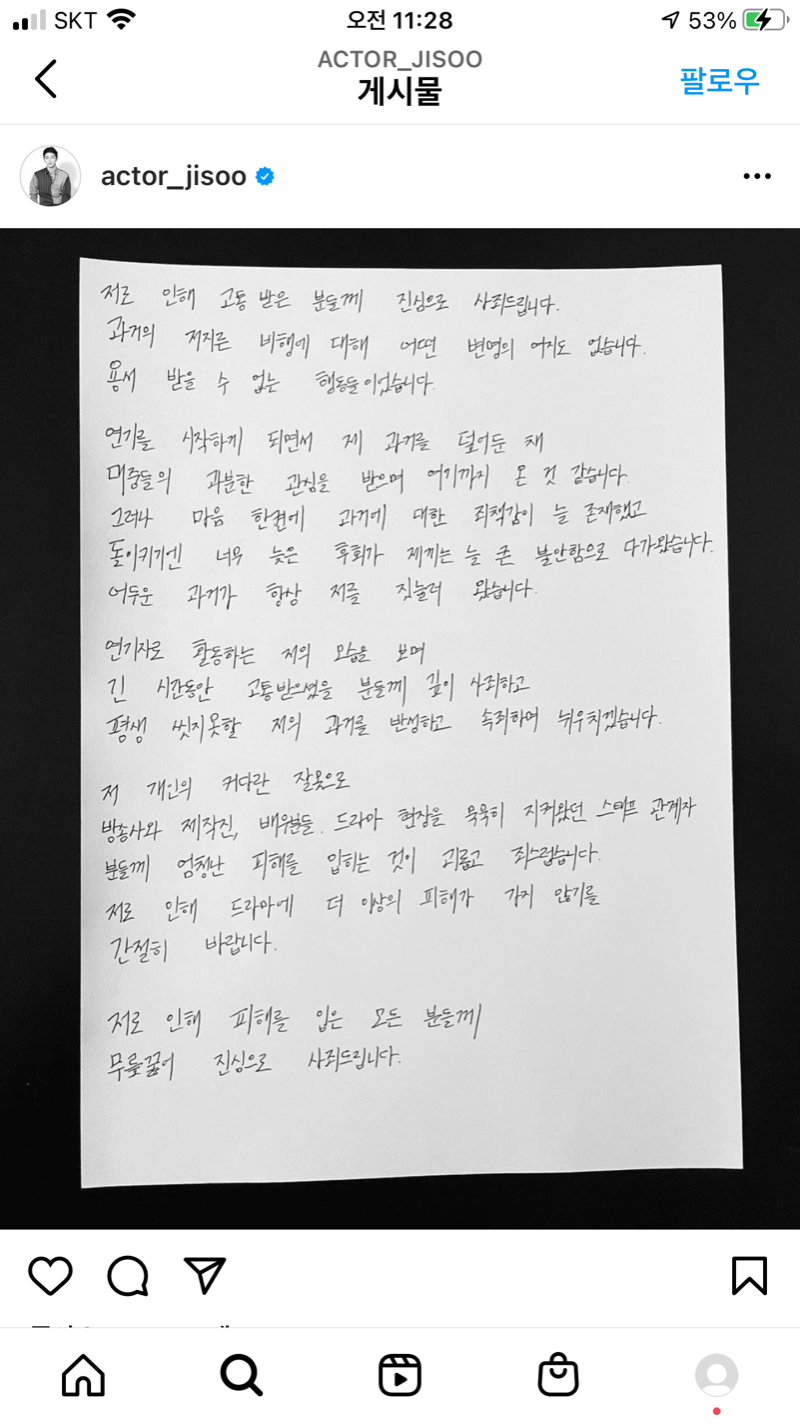 SKT 오전 11:28 53%
ACTOR_JISOO
게시물
팔로우
actor_jisoo
저로 인해 고통 받은 분들께 진심으로 사죄드립니다.
과거의 저지른 비행에 대해 어떤 변명의 여지도 없습니다.
용서 받을 수 없는 행동들이었습니다.
연기를 시작하게 되면서 제 과거를 덮어둔 채
대중들의 과분한 관심을 받으며 여기까지 온 것 같습니다.
그러나 마음 한켠에 과거에 대한 죄책감이 늘 존재했고
돌이키기엔 너무 늦은 후회가 저에게는 늘 큰 불안함으로 다가왔습니다.
어두운 과거가 항상 저를 짓눌러 왔습니다.
연기자로 활동하는 저의 모습을 보며
긴 시간동안 고통받으셨을 분들께 깊이 사죄하고
평생 씻지못할 저의 과거를 반성하고 속죄하며 뉘우치겠습니다.
저 개인의 커다란 잘못으로
방송사와 제작진, 배우분들, 드라마 현장을 묵묵히 지켜왔던 스태프 관계자
분들께 엄청난 피해를 입히는 것이 괴롭고 죄스럽습니다.
저로 인해 드라마에 더 이상의 피해가 가지 않기를
간절히 바랍니다.
저로 인해 피해를 입은 모든 분들께
무릎꿇어 진심으로 사죄드립니다.